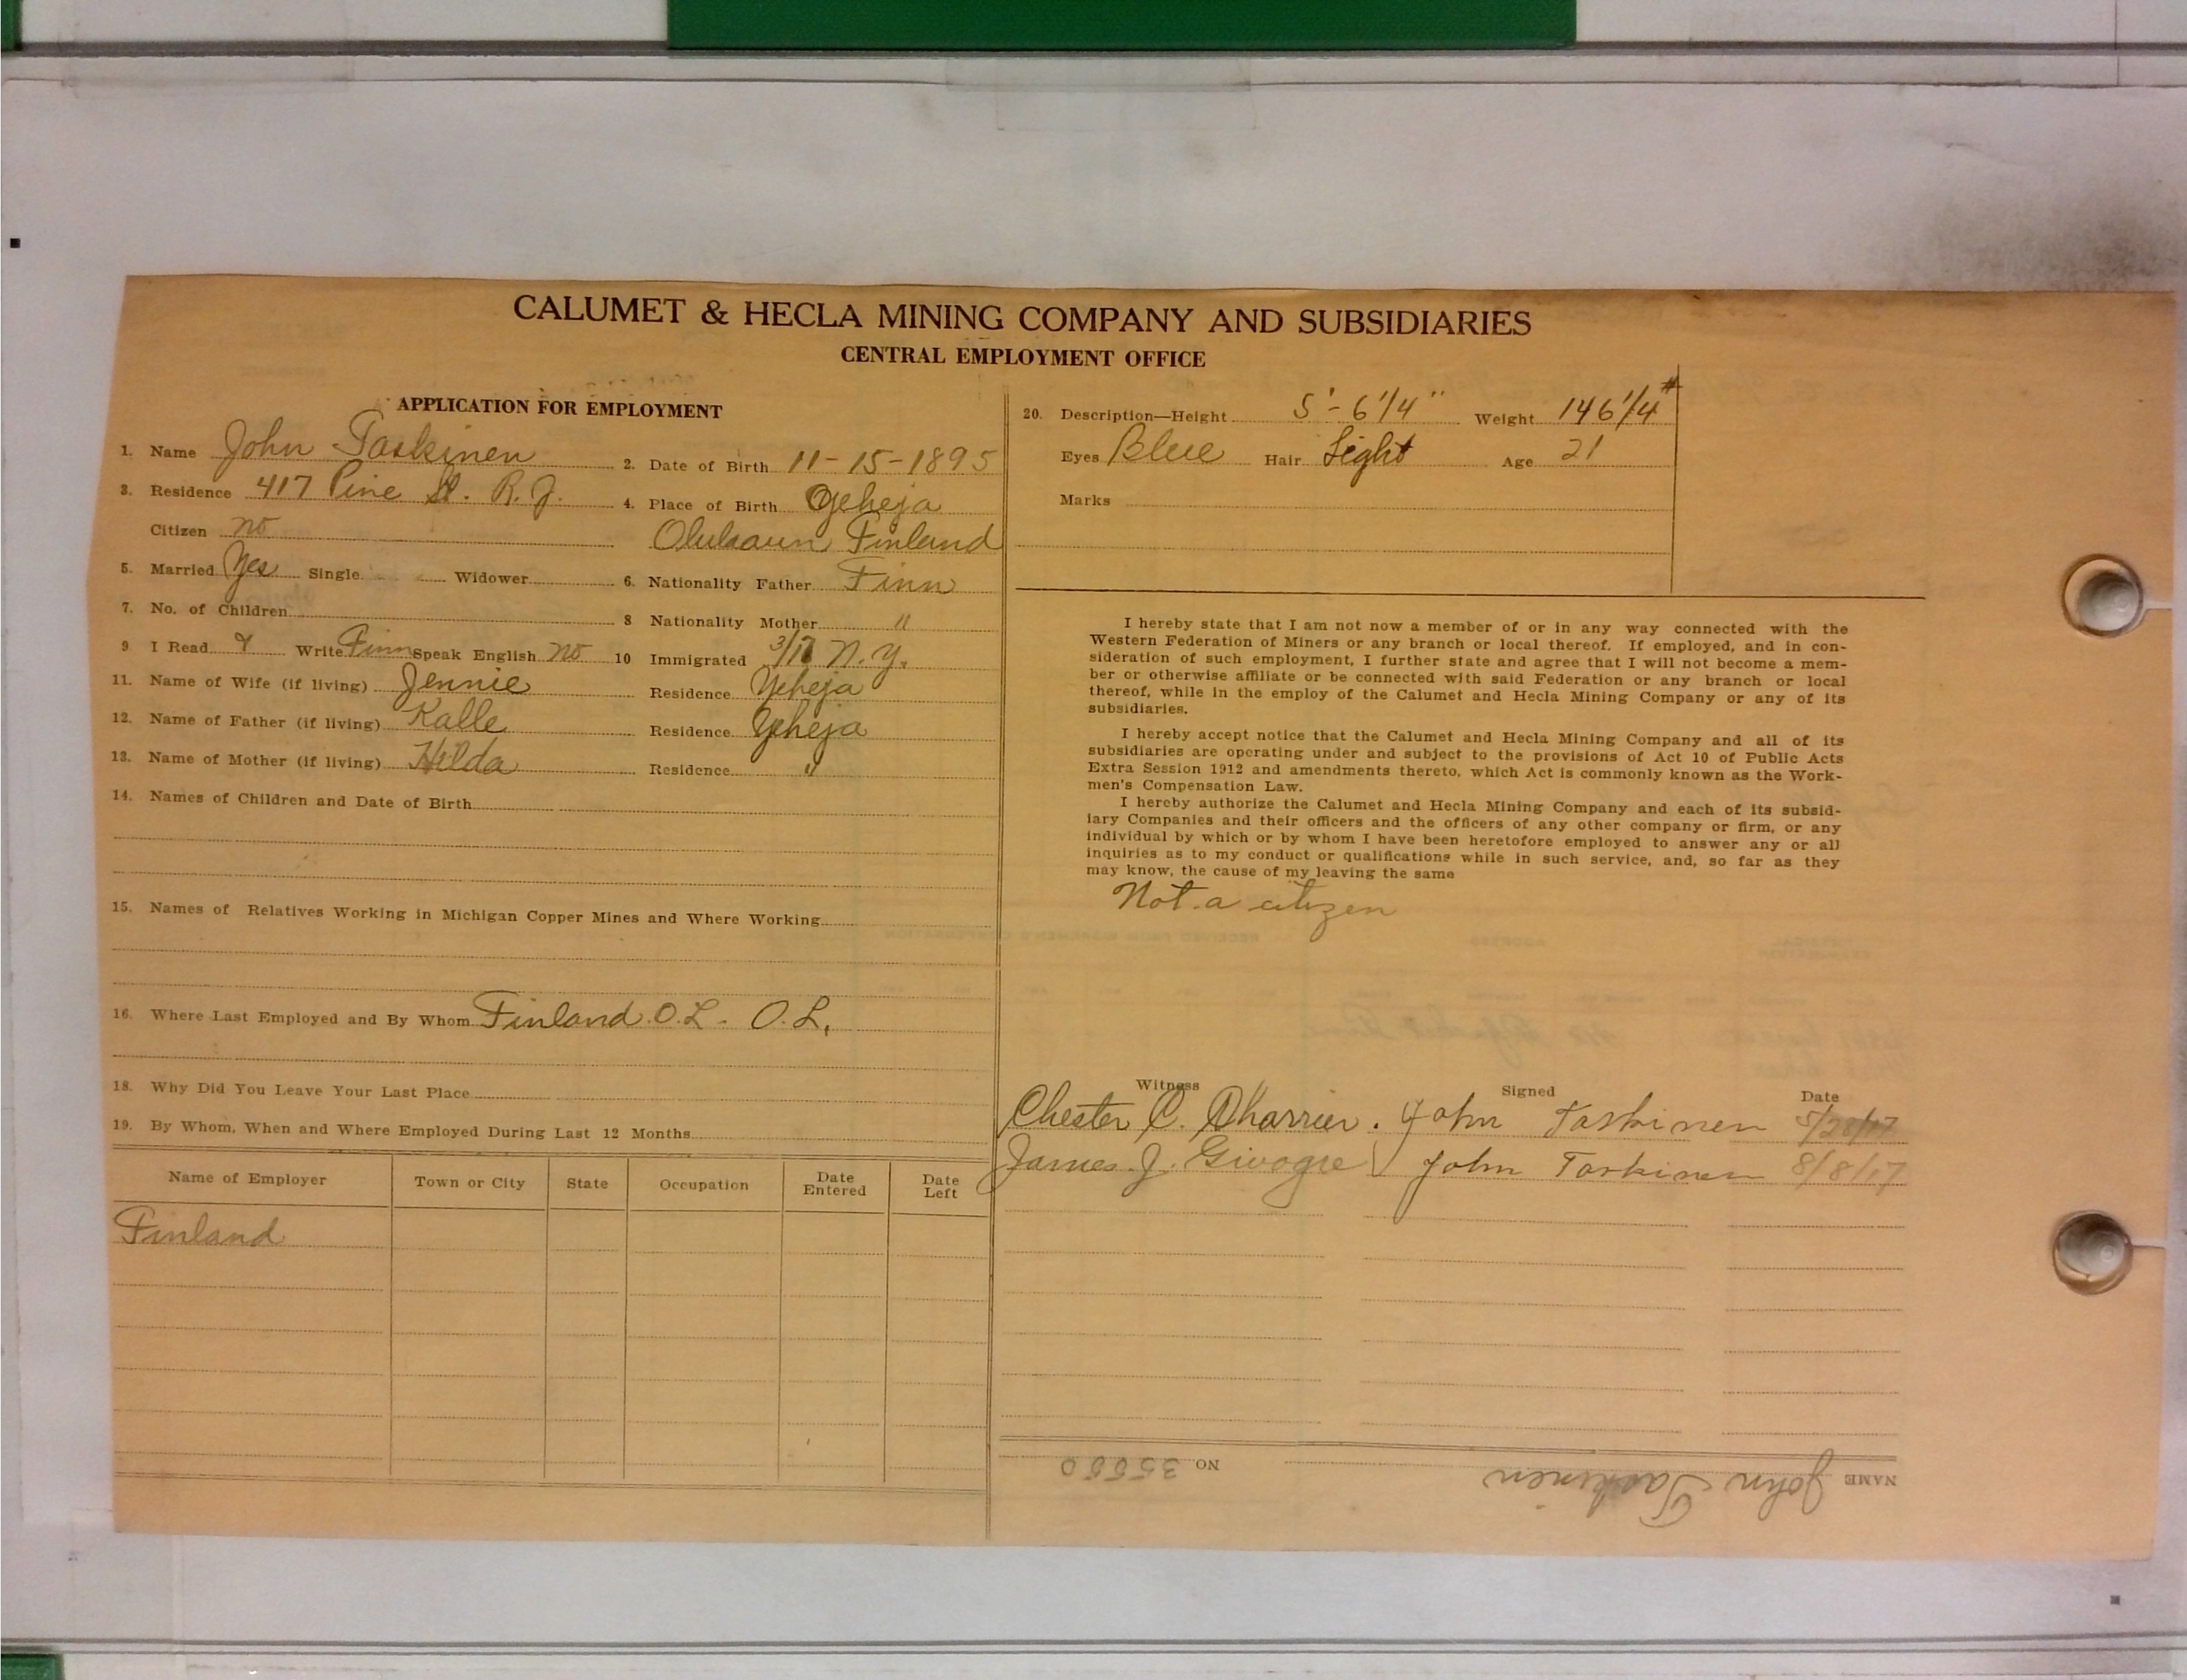 CALUMET & HECLA MINING COMPANY AND SUBSIDIARIES
CENTRAL EMPLOYMENT OFFICE
APPLICATION FOR EMPLOYMENT
1. Name John Taskinen 2. Date of Birth 11-15-1895
3. Residence 417 Pine St. R. J. 4. Place of Birth Yeheja
Citizen no Olulaaun Finland
5. Married Yes Single Widower 6. Nationality Father Finn
7. No. of Children 8 Nationality Mother "
9 I Read & Write Finn Speak English no 10 Immigrated 3/17 N.Y.
11. Name of Wife (if living) Jennie Residence Yeheja
12. Name of Father (if living) Kalle Residence Yeheja
13. Name of Mother (if living) Hilda Residence "
14. Names of Children and Date of Birth
15. Names of Relatives Working in Michigan Copper Mines and Where Working
16. Where Last Employed and By Whom Finland O.L. - O.L.
18. Why Did You Leave Your Last Place
19. By Whom, When and Where Employed During Last 12 Months
Name of Employer Town or City State Occupation Date Entered Date Left
Finland
20. Description—Height 5'-6 1/4" Weight 146 1/4 #
Eyes Blue Hair Light Age 21
Marks
I hereby state that I am not now a member of or in any way connected with the
Western Federation of Miners or any branch or local thereof. If employed, and in con-
sideration of such employment, I further state and agree that I will not become a mem-
ber or otherwise affiliate or be connected with said Federation or any branch or local
thereof, while in the employ of the Calumet and Hecla Mining Company or any of its
subsidiaries.
I hereby accept notice that the Calumet and Hecla Mining Company and all of its
subsidiaries are operating under and subject to the provisions of Act 10 of Public Acts
Extra Session 1912 and amendments thereto, which Act is commonly known as the Work-
men's Compensation Law.
I hereby authorize the Calumet and Hecla Mining Company and each of its subsid-
iary Companies and their officers and the officers of any other company or firm, or any
individual by which or by whom I have been heretofore employed to answer any or all
inquiries as to my conduct or qualifications while in such service, and, so far as they
may know, the cause of my leaving the same
Not a citizen
Witness Signed Date
Chester C. John Taskinen 5/28/17
James J. Givogre John Taskinen 8/8/17
NAME John Taskinen NO